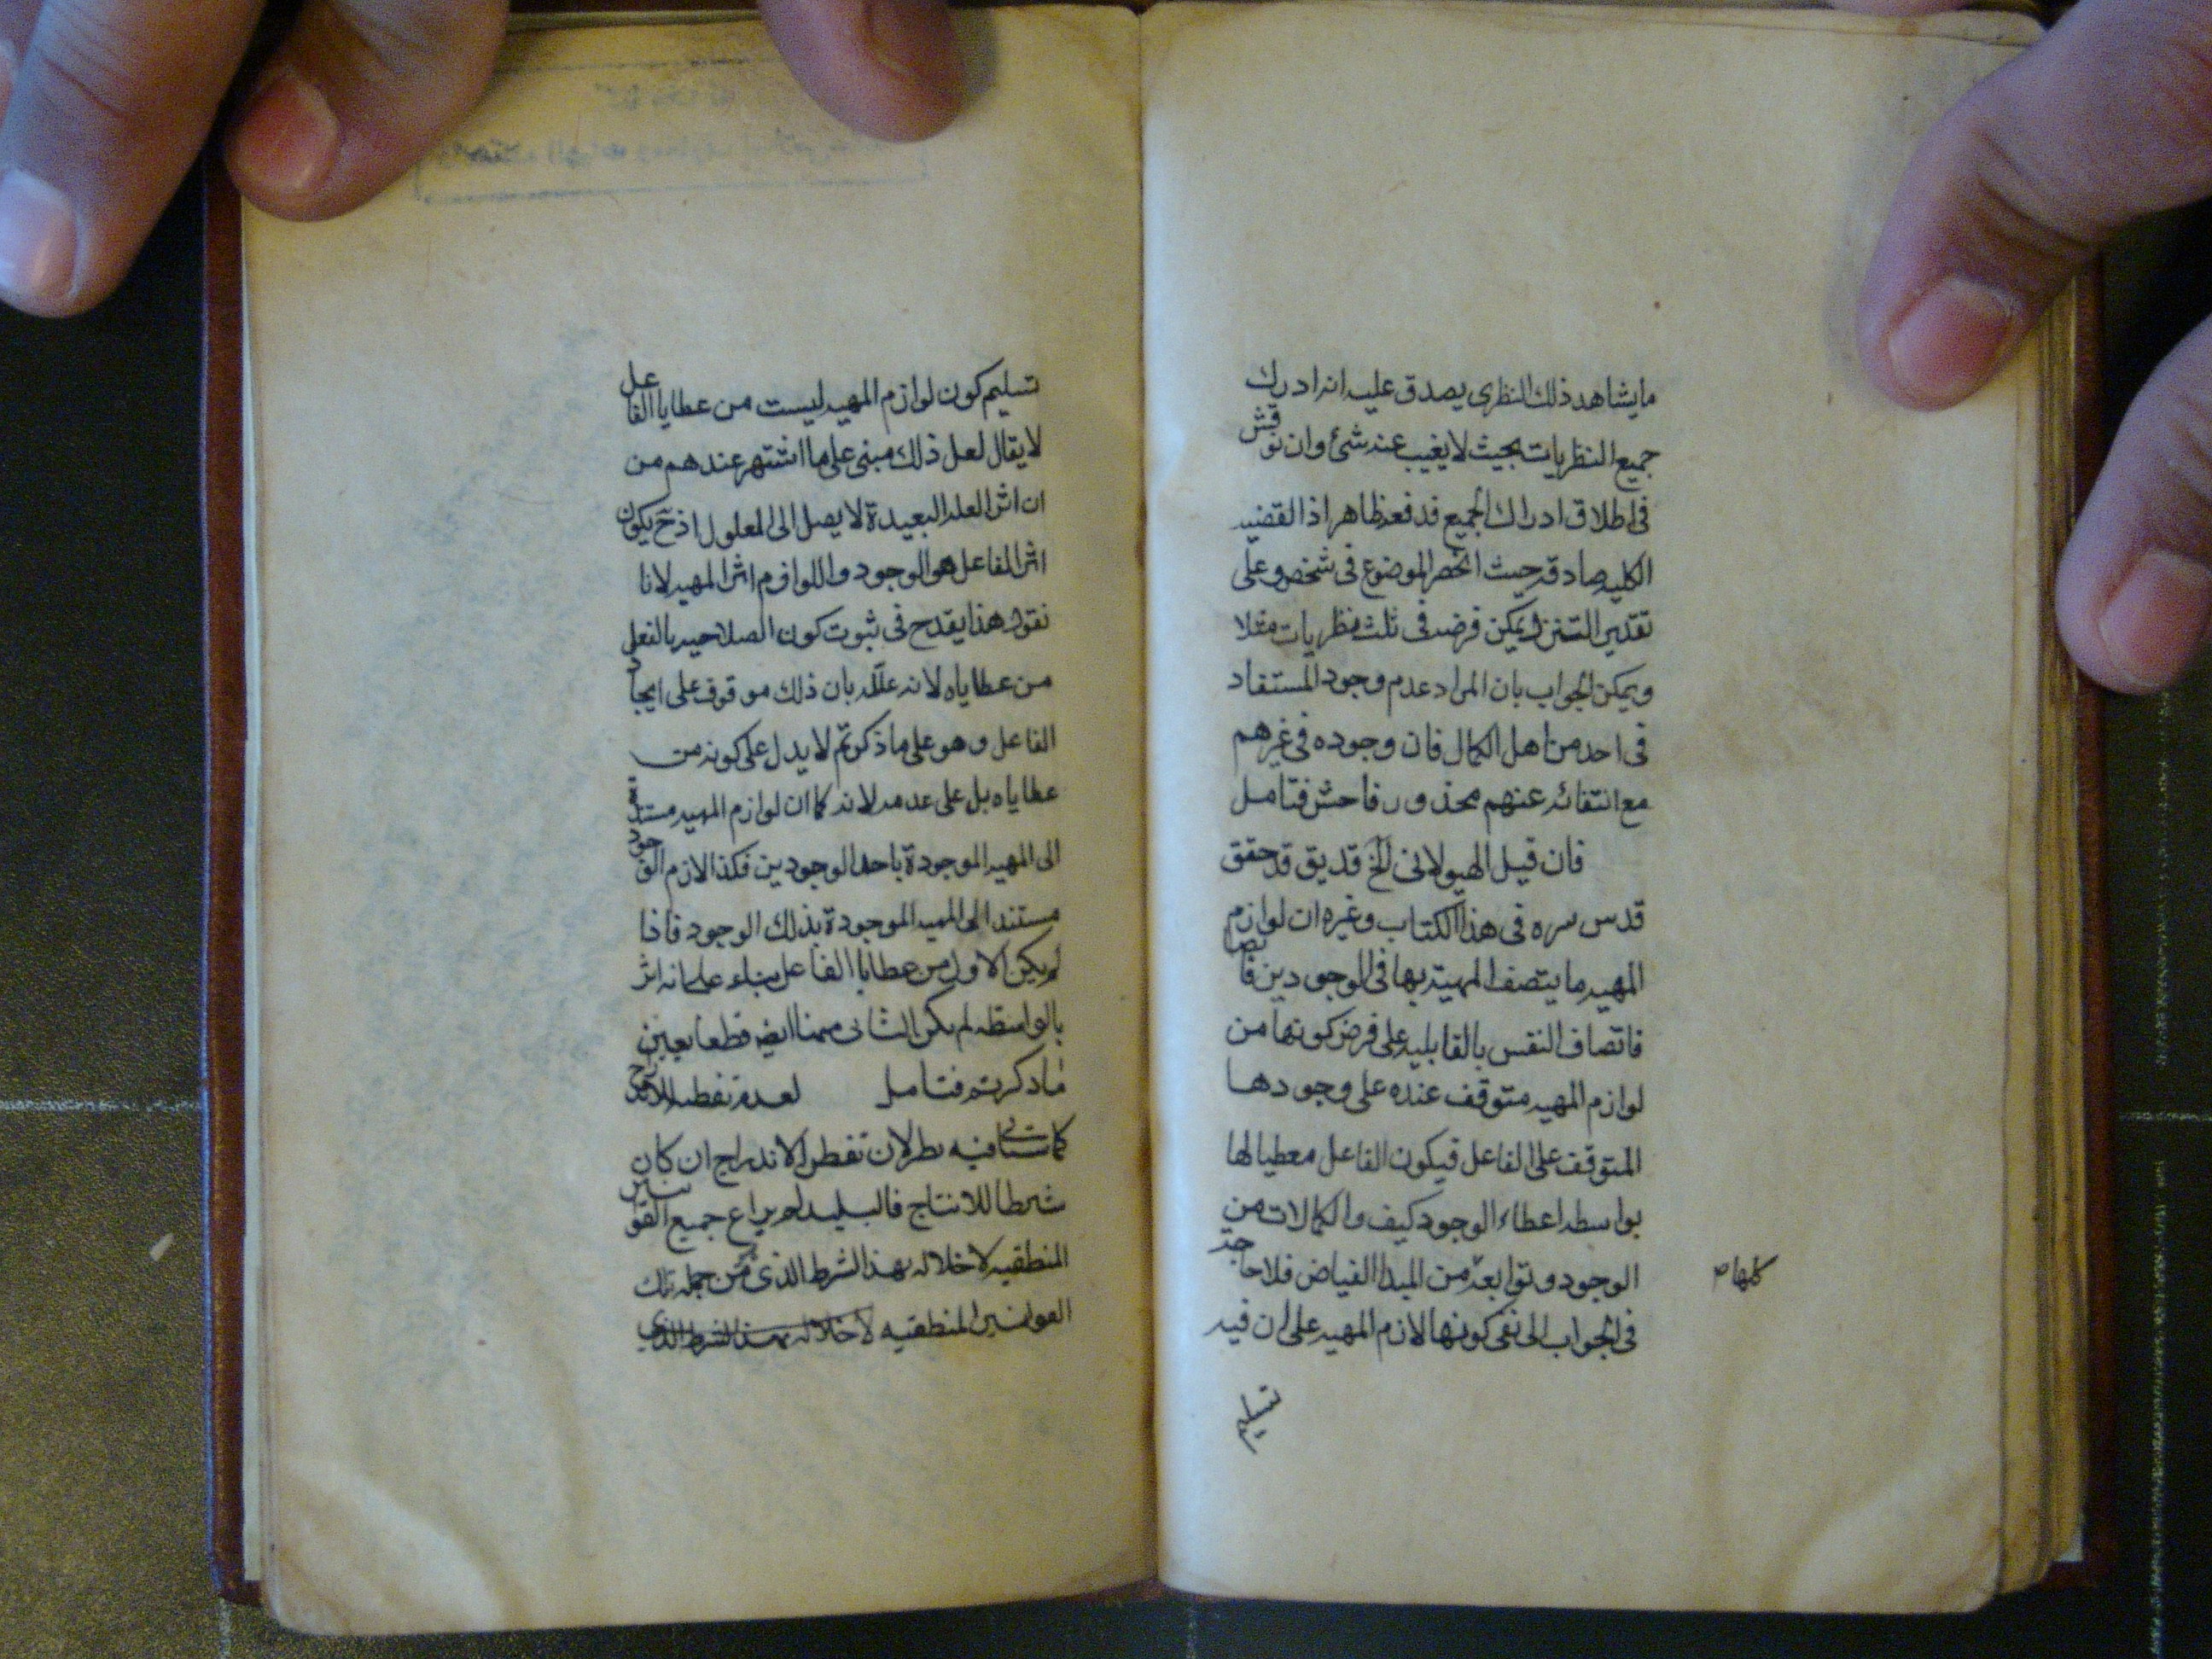 ما يشاهد ذلك النظرى يصدق عليه انه ادرك
جميع النظريات بحيث لا يغيب عنه شئ وان نوقش
فى اطلاق ادراك الجميع فدفعه ظاهر اذ القضيه
الكليه صادقه حيث انحصر الموضوع فى شخص وعلى
تقدير التنزل يمكن فرضه فى ثلث نظريات مثلا
ويمكن الجواب بان المراد عدم وجود المستفاد
فى احد من اهل الكمال فان وجوده فى غيرهم
مع انتفائه عنهم محذور فاحش فتامل
فان قيل الهيولانى الخ قد يق قد حقق
قدس سره فى هذا الكتاب وغيره ان لوازم
المهيه ما يتصف المهية بها فى الوجودين
فاتصاف النفس بالقابليه على فرض كونها من
لوازم المهيه متوقف عنده على وجودها
المتوقف على الفاعل فيكون الفاعل معطيا لها
بواسطه اعطاء الوجود كيف والكمالات من
الوجود وتوابعه من المبدا الفياض فلا حاجة
كلها م
فى الجواب الى نفى كونها لازم المهيه على ان فيه
تسليم
تسليم كون لوازم المهيه ليست من عطايا الفاعل
لا يقال لعل ذلك مبنى على ما اشتهر عندهم من
ان اثر العله البعيدة لا يصل الى المعلول اذ ح يكون
اثر الفاعل هو الوجود واللوازم اثر المهيه لانا
نقول هذا يقدح فى ثبوت كون الصلاحيه بالفعل
من عطاياه لانه علله بان ذلك موقوف على ايجاد
الفاعل وهو على ما ذكرتم لا يدل على كونه من
عطاياه بل على عدمه لانه كما ان لوازم المهيه مستندة
الى المهيه الموجودة باحد الوجودين فكذا لازم الوجود
مستند الى المهيه الموجودة بذلك الوجود فاذا
لم يكن الاول من عطايا الفاعل بناء على انه اثر
بالواسطه لم يكن الثانى منها ايضه قطعا بعين
ما ذكرتم فتامل لعدم تفطنه
فيه نظر لان تفطن الاندراج ان كان
شرطا للانتاج فالبليد لم يراع جميع القوانين
المنطقيه لاخلاله بهذا الشرط الذى من جمله تلك
القوانين المنطقيه لاخلاله بهذا الشرط الذى